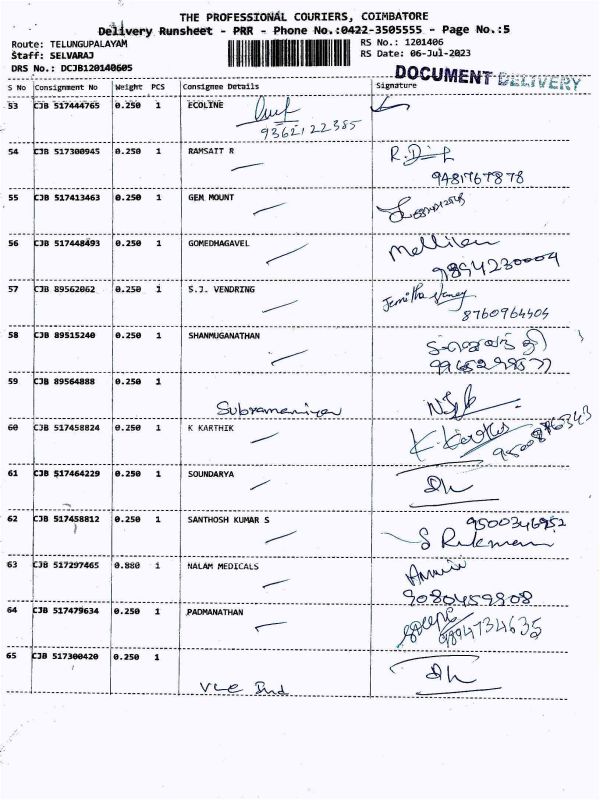 THE PROFESSIONAL COURIERS, COIMBATORE
Delivery Runsheet - PRR - Phone No.:0422-3505555 - Page No.:5
Route: TELUNGUPALAYAM RS No.: 1201406
Staff: SELVARAJ RS Date: 06-Jul-2023
DRS No.: DCJB120140605
DOCUMENT DELIVERY
S No Consignment No Weight PCS Consignee Details Signature
53 CJB 517444765 0.250 1 ECOLINE
9362122385
54 CJB 517300945 0.250 1 RAMSAIT R
9481767878
55 CJB 517413463 0.250 1 GEM MOUNT
56 CJB 517448493 0.250 1 GOMEDHAGAVEL
9894230004
57 CJB 89562062 0.250 1 S.J. VENDRING
8760964504
58 CJB 89515240 0.250 1 SHANMUGANATHAN
59 CJB 89564888 0.250 1
Subramaniyan
60 CJB 517458824 0.250 1 K KARTHIK K. Karthik
9500876343
61 CJB 517464229 0.250 1 SOUNDARYA
62 CJB 517458812 0.250 1 SANTHOSH KUMAR S 9500346952
S Rukmani
63 CJB 517297465 0.880 1 NALAM MEDICALS
9080459908
64 CJB 517479634 0.250 1 PADMANATHAN
9894734635
65 CJB 517300420 0.250 1